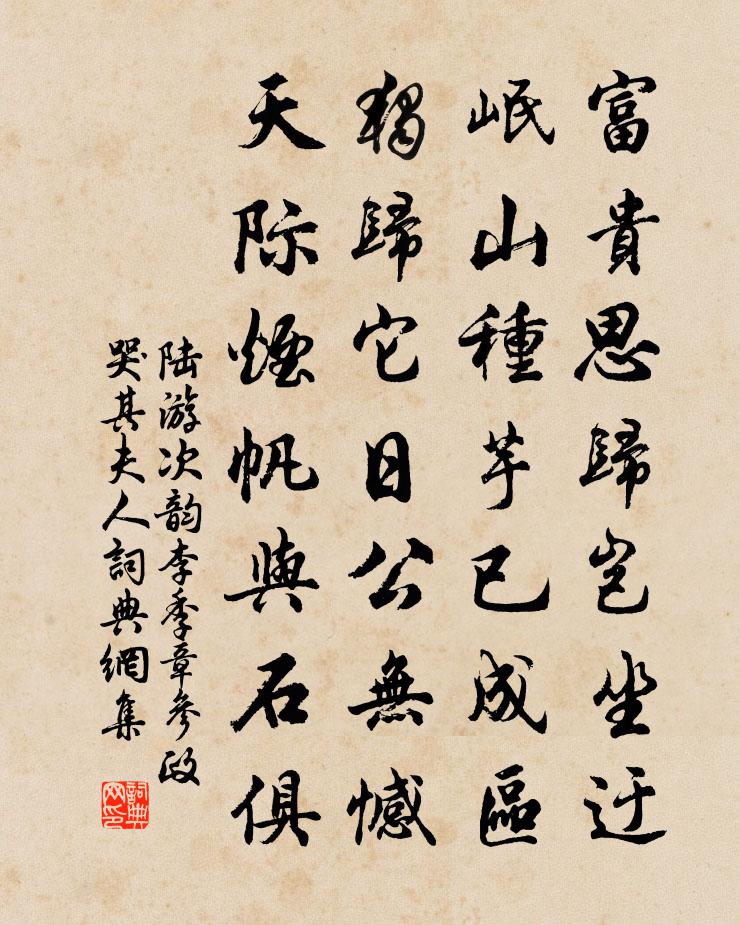 富貴思歸豈坐迂
岷山種芋已成區
獨歸它日公無憾
天际煙帆與石俱
陆游次韵李季章參政
哭其夫人詞典網集
詞典网印